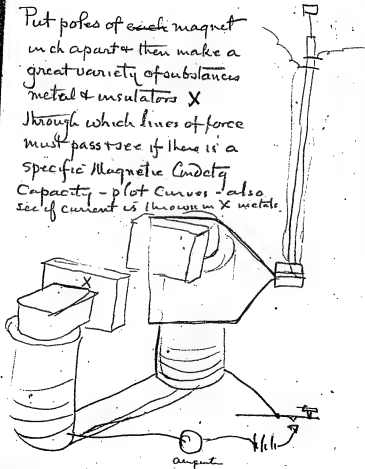 Put poles of each magnet
inch apart & then make a
great variety of substances
metal & insulators X
through which lines of force
must pass & see if there is a
specific Magnetic Condcty
Capacity - plot Curves - also
see if current is thrown in X metals.
X